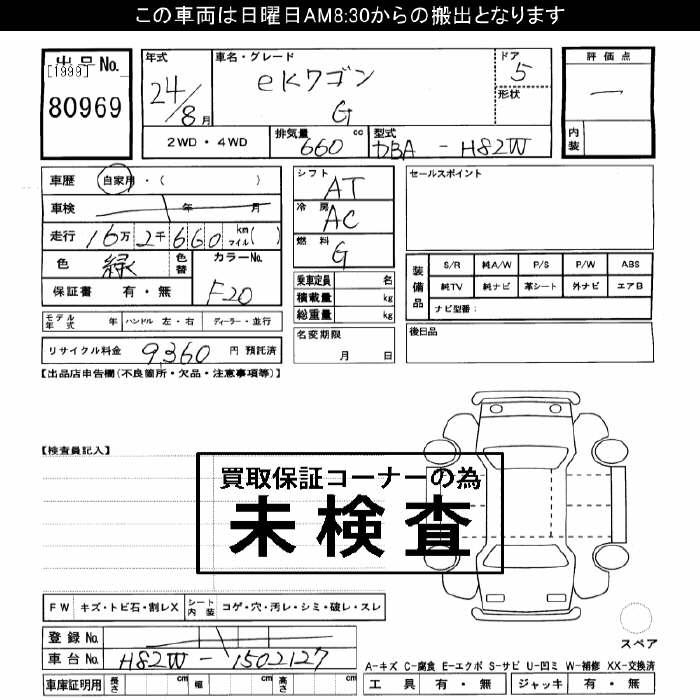 この車両は日曜日AM8:30からの搬出となります
出品No.
[1999]
80969
年式
24/8月
車名・グレード
eKワゴン
G
ドア
5
形状
評価点
—
内装
2WD・4WD
排気量 660 cc
型式 DBA - H82W
車歴 自家用・( )
車検 年 月
走行 16万2千660 km マイル( )
色 緑 色替 カラーNo.
F20
保証書 有・無
モデル年式 年 ハンドル 左・右 ディーラー・並行
リサイクル料金 9,360 円 預託済
シフト AT
冷房 AC
燃料 G
乗車定員 名
積載量 kg
総重量 kg
名変期限
月 日
セールスポイント
装備品 S/R 純A/W P/S P/W ABS
純TV 純ナビ 革シート 外ナビ エアB
ナビ型番:
後日品
【出品店申告欄(不良箇所・欠品・注意事項等)】
【検査員記入】
買取保証コーナーの為
未検査
FW キズ・トビ石・割レX シート内装 コゲ・穴・汚レ・シミ・破レ・スレ
登録No.
車台No. H82W-1502127
車庫証明用 長さ cm 幅 cm 高さ cm
スペア
A-キズ C-腐食 E-エクボ S-サビ U-凹ミ W-補修 XX-交換済
工具 有・無 ジャッキ 有・無